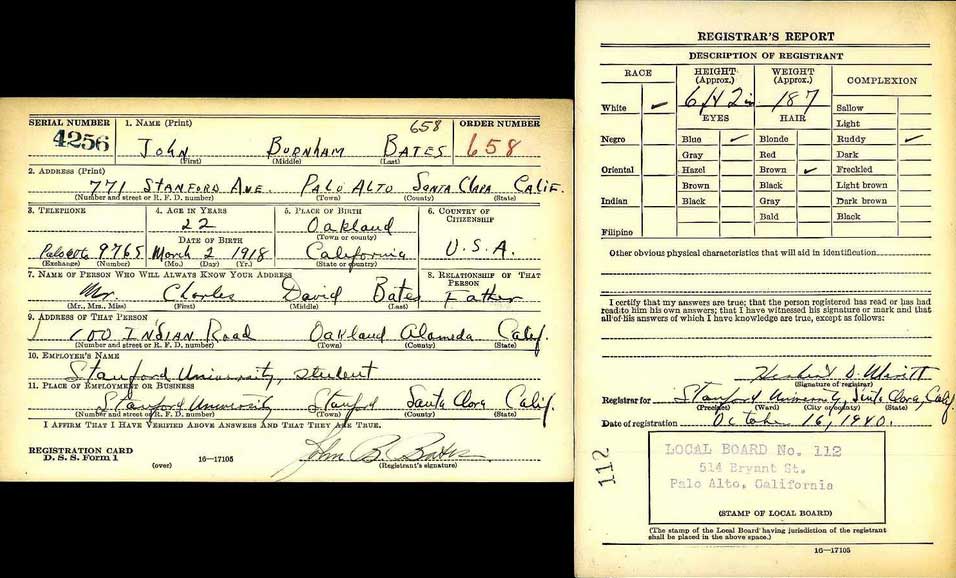 SERIAL NUMBER
4256
1. NAME (Print)
658
ORDER NUMBER
JOHN BURNHAM BATES
658
(First) (Middle) (Last)
2. ADDRESS (Print)
771 STANFORD AVE. PALO ALTO SANTA CLARA CALIF.
(Number and street or R. F. D. number) (Town) (County) (State)
3. TELEPHONE
4. AGE IN YEARS
5. PLACE OF BIRTH
6. COUNTRY OF CITIZENSHIP
22
Oakland
(Town or county)
DATE OF BIRTH
U.S.A.
9765 March 2 1918 California
(Exchange) (Number) (Mo.) (Day) (Yr.) (State or country)
7. NAME OF PERSON WHO WILL ALWAYS KNOW YOUR ADDRESS
8. RELATIONSHIP OF THAT PERSON
Mr. Charles David Bates Father
(Mr., Mrs., Miss) (First) (Middle) (Last)
9. ADDRESS OF THAT PERSON
INDIAN Road Oakland Alameda Calif.
(Number and street or R. F. D. number) (Town) (County) (State)
10. EMPLOYER'S NAME
Stanford University, student
11. PLACE OF EMPLOYMENT OR BUSINESS
Stanford University Stanford Santa Clara Calif.
(Number and street or R. F. D. number) (Town) (County) (State)
I AFFIRM THAT I HAVE VERIFIED ABOVE ANSWERS AND THAT THEY ARE TRUE.
REGISTRATION CARD
D. S. S. Form 1
(over)
16—17105
John B. Bates
(Registrant's signature)
REGISTRAR'S REPORT
DESCRIPTION OF REGISTRANT
RACE
HEIGHT (Approx.)
WEIGHT (Approx.)
COMPLEXION
White ✓
187
Sallow
Light
EYES
HAIR
Negro
Blue ✓
Blonde
Ruddy ✓
Gray
Red
Dark
Oriental
Hazel
Brown ✓
Freckled
Brown
Black
Light brown
Indian
Black
Gray
Dark brown
Bald
Black
Filipino
Other obvious physical characteristics that will aid in identification
I certify that my answers are true; that the person registered has read or has had
read to him his own answers; that I have witnessed his signature or mark and that
all of his answers of which I have knowledge are true, except as follows:
(Signature of registrar)
Registrar for Stanford University, Santa Clara, Calif
(Precinct) (Ward) (City or county) (State)
Date of registration October 16, 1940.
112
LOCAL BOARD No. 112
514 Bryant St.
Palo Alto, California
(STAMP OF LOCAL BOARD)
(The stamp of the Local Board having jurisdiction of the registrant
shall be placed in the above space.)
16—17105